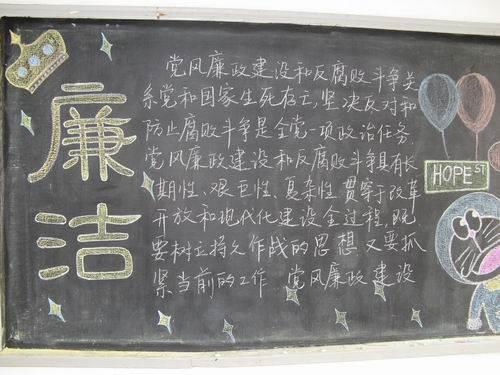 廉洁
党风廉政建设和反腐败斗争关
系党和国家生死存亡,坚决反对和
防止腐败斗争是全党一项政治任务.
党风廉政建设和反腐败斗争具有长
期性、艰巨性、复杂性,贯穿于改革
开放和现代化建设全过程,既
要树立持久作战的思想 又要抓
紧当前的工作 党风廉政建设
HOPE ST